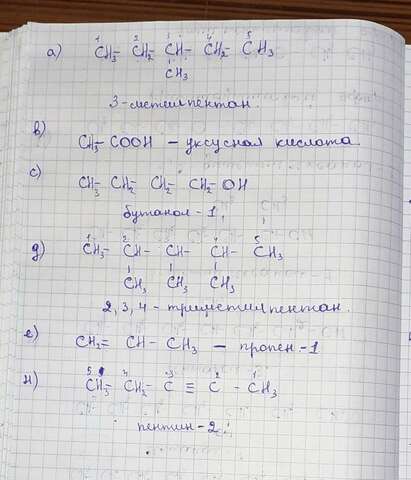 1 2 3 4 5
а) CH3- CH2- CH- CH2- CH3
CH3
3-метилпентан.
в)
CH3- COOH - уксусная кислота.
с)
CH3- CH2- CH2- CH2-OH
бутанол-1.
1 2 3 4 5
д) CH3- CH- CH- CH- CH3
CH3 CH3 CH3
2, 3, 4 - триметилпентан.
е)
CH2= CH- CH3 - пропен-1
5 4 3 2 1
н) CH3- CH2- C ≡ C - CH3
пентин-2.